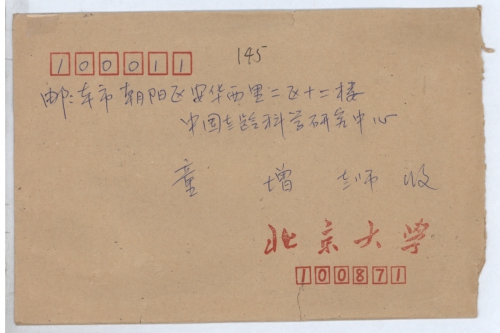 145
100011
邮:本市朝阳区安华西里二区十二楼
中国老龄科学研究中心
童 增 老师 收
北京大学
100871